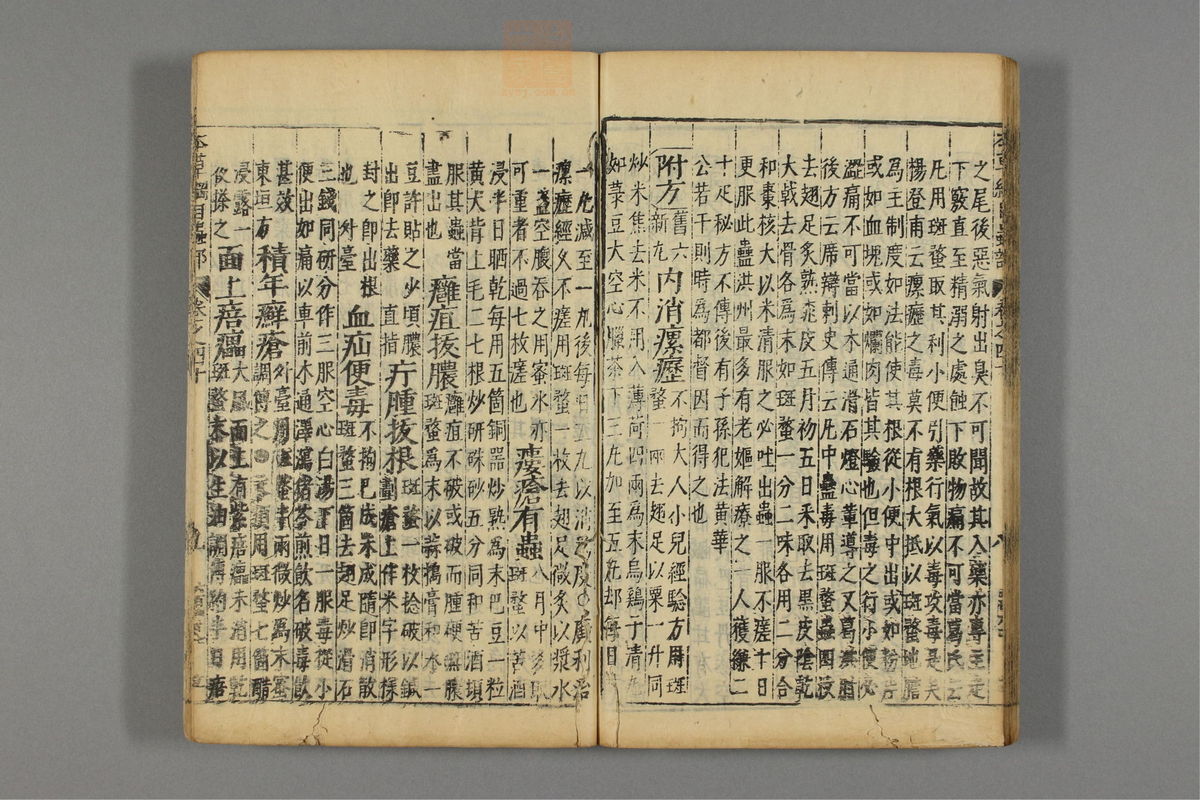 之尾後惡氣射出臭不可聞故其入藥亦專主走
下竅直至精溺之處蝕下敗物痛不可當葛氏云
凡用斑蝥取其利小便引藥行氣以毒攻毒是矣
楊登甫云瘰癧之毒莫不有根大抵以斑蝥地膽
為主制度如法能使其根從小便中出或如粉片
或如血塊或如爛肉皆其驗也但毒之行小便必
澀痛不可當以木通滑石燈心輩導之又葛洪肘
後方云席辯刺史傳云凡中蠱毒用斑蝥蟲四枚
去翅足炙熟桃皮五月初五日采取去黑皮陰乾
大戟去骨各為末如斑蝥一分二味各用二分合
和棗核大以米清服之必吐出蟲一服不瘥十日
更服此蠱洪州最多有老嫗解療之一人獲縑二
十疋秘方不傳後有子孫犯法黃華
公若干則時為都督因而得之也
附方 舊六新九 內消瘰癧 不拘大人小兒經驗方用斑
蝥一兩去翅足以粟一升同
炒米焦去米不用入薄荷四兩為末烏鷄子清丸
如菉豆大空心臘茶下三丸加至五丸却每日
一丸減至一丸後每日五丸以消為度 廣利治
瘰癧經久不瘥用斑蝥一枚去翅足微炙以漿水
一盞空腹吞之用蜜水亦
可重者不過七枚瘥也 瘻瘡有蟲 八月中多取
斑蝥以苦酒
浸半日晒乾每用五箇銅器炒熟為末巴豆一粒
黃犬背上毛二七根炒研硃砂五分同和苦酒頓
服其蟲當
盡出也 癰疽拔膿 癰疽不破或破而腫硬無膿
斑蝥為末以蒜搗膏和水一
豆許貼之少頃膿
出即去藥 直指 疔腫拔根 斑蝥一枚捻破以鍼
劃瘡上作米字形樣
封之即出根
也 外臺 血疝便毒 不拘已成未成隨即消散
斑蝥三箇去翅足炒滑石
三錢同研分作三服空心白湯下日一服毒從小
便出如痛以車前木通澤瀉猪苓煎飲名破毒飲
甚效
東垣方 積年癬瘡 外臺用斑蝥半兩微炒為末蜜
調傅之 用斑蝥七箇醋
浸露一
夜搽之 面上㾦㿔 大風面上有紫㾦㿔未消用乾
斑蝥末以生油調傅約半日㾦